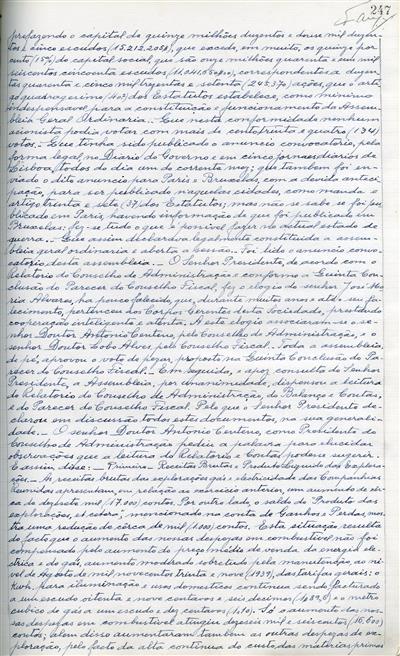 247
prefazendo o capital de quinze milhões duzentos e doze mil duzen-
tos e cinco escudos (15.212.205$), que excede, em muito, os quinze por
cento (15%) do capital social, que são onze milhões quarenta e um mil
seiscentos cincoenta escudos (11.041.650$00), correspondentes a duzen-
tos quarenta e cinco mil trezentas e setenta (245.370) acções, que o arti-
go quadragésimo (40º) dos Estatutos estabelece, como mínimo
indespensável para a constituição e funcionamento da Assem-
bleia Geral Ordinária.- Que nesta conformidade nenhum
accionista podia votar com mais de cento trinta e quatro (134)
votos.- Que tinha sido publicado o anuncio convocatorio, pela
forma legal, no Diário do Governo e em cinco jornaes diarios de
Lisboa, todos do dia um do corrente mez; que tambem foi en-
viado o dito anuncio para Paris e Bruxelas, com a devida anteci-
pação, para ser publicado naquelas cidades, como manda o
artigo trinta e sete (37) dos Estatutos; mas não se sabe se foi pu-
blicado em Paris, havendo informação de que foi publicado em
Bruxelas: fez-se tudo o que é possivel fazer no actual estado de
guerra.- Que assim declarava legalmente constituida a assem-
bleia geral ordinaria e aberta a sessão. Foi lido o anuncio convo-
catorio desta assembleia.- O Senhor Presidente, de acordo com o
Relatorio do Conselho de Administração e conforme a Quinta Con-
clusão do Parecer do Conselho Fiscal, fez o elogio do senhor José Ma-
ria Alvares, ha pouco falecido, que, durante muitos anos e até o seu fa-
lecimento, pertenceu aos Corpos Gerentes desta Sociedade, prestando
cooperação inteligente e atenta. A este elogio associaram-se o se-
nhor Doutor Antonio Centeno, pelo Conselho de Administração, e o
senhor Doutor Lobo Alves, pelo Conselho Fiscal. Toda a assembleia,
de pé, aprovou o voto de pezar, proposto na Quinta Conclusão do Pa-
recer do Conselho Fiscal.- Em seguida, e após consulta do Senhor
Presidente, a Assembleia, por unanimidade, dispensou a leitura
do Relatorio do Conselho de Administração, do Balanço e Contas,
e do Parecer do Conselho Fiscal. Pelo que o Senhor Presidente de-
clarou em discussão todos estes documentos, na sua generali-
dade.- O senhor Doutor Antonio Centeno, como Presidente do
Conselho de Administração pediu a palavra para elucidar
observações que a leitura do Relatorio e Contas poderia sugerir.
E assim disse:- Primeira- Receitas Brutas e Produto Liquido das Explora-
ções.- As receitas brutas das explorações gás e electricidade das Companhias
Reunidas apresentam, em relação ao exercicio anterior, um aumento de cêr-
ca de dezasete mil (17.000) contos. Por outro lado, o saldo do "Produto das
explorações, et cetera", mencionado na conta de Ganhos e Perdas, mos-
tra uma redução de cêrca de mil (1.000) contos. Esta situação resulta
do facto que o aumento das nossas despezas em combustivel não foi
compensado pelo aumento do preço médio de venda da energia ele-
ctrica e do gás, aumento moderado sobretudo pela manutenção, ao ni-
vel de Agosto de mil novecentos trinta e nove (1939), das tarifas gerais: o
Kwh. para iluminação e usos domesticos continua sendo facturado
a um escudo oitenta e nove centavos e seis decimos (1,89,6) e o metro
cubico de gás a um escudo e dez centavos (1,10). Só o aumento das nos-
sas despezas em combustivel atingiu dezeseis mil e seiscentos (16.600)
contos; além disso aumentaram tambem as outras despezas de ex-
ploração, pelo facto da alta continua do custo das materias primas